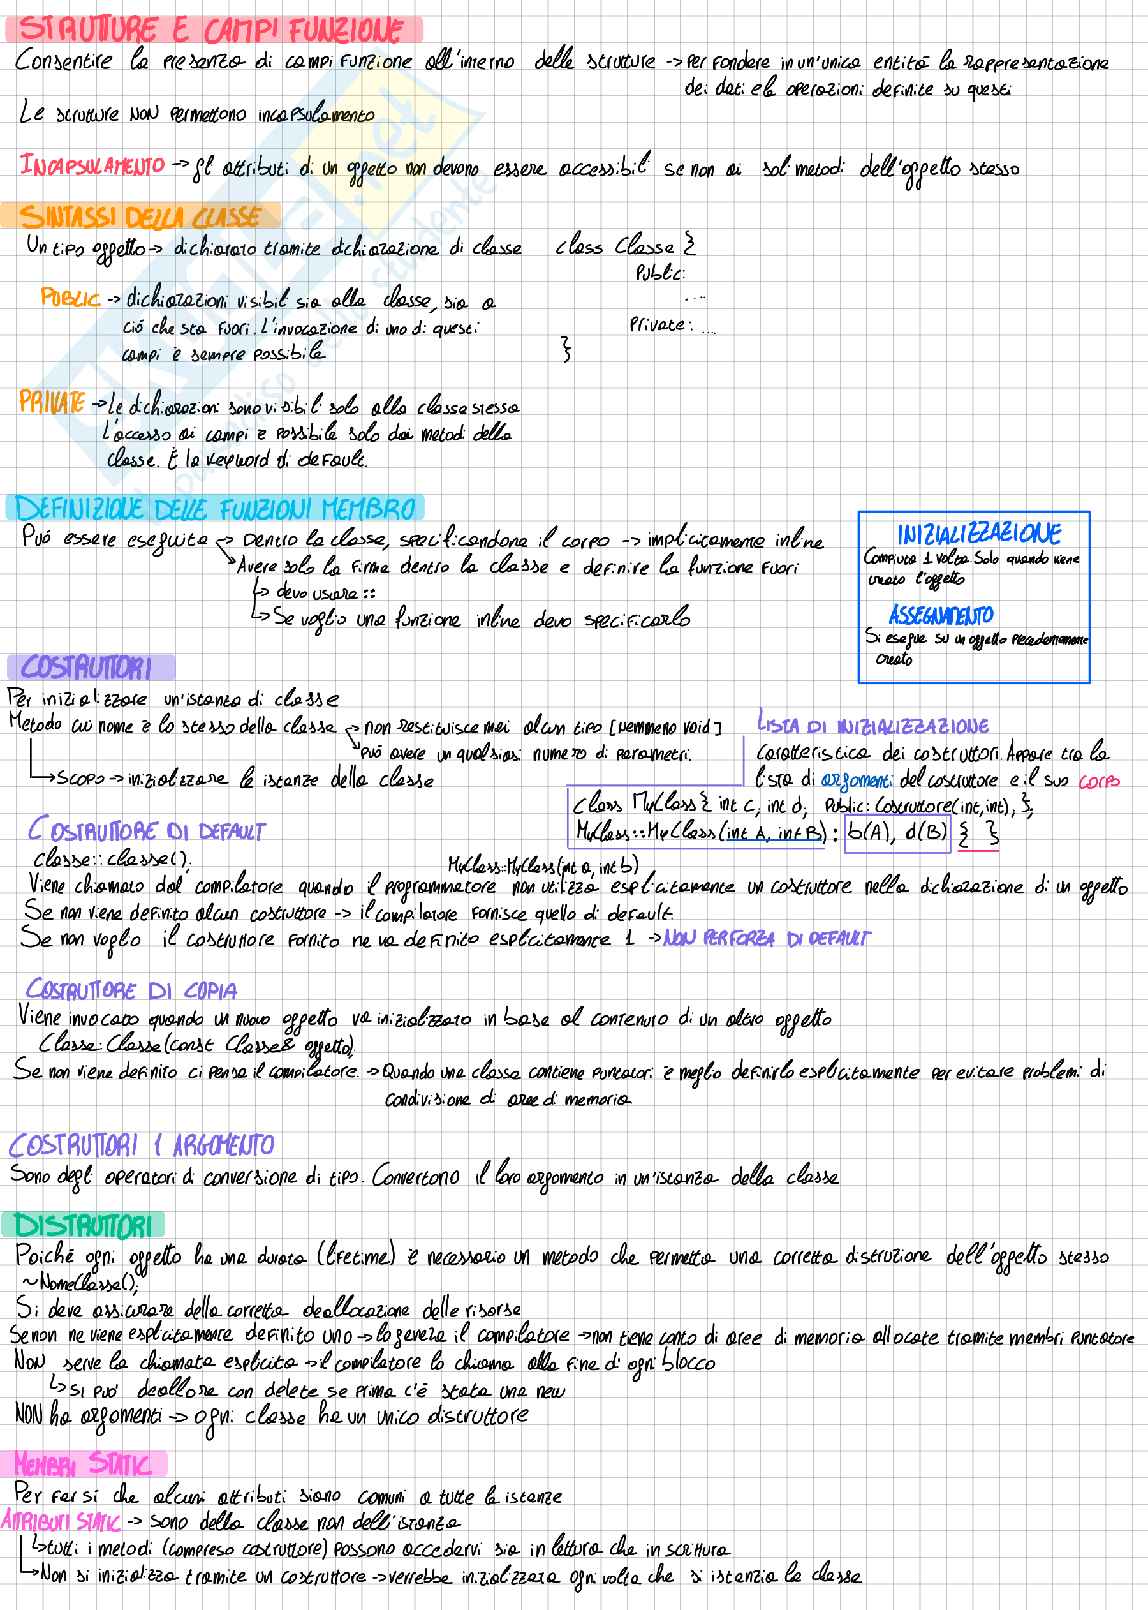 STRUTTURE E CAMPI FUNZIONE
Consentire la presenza di campi funzione all'interno delle strutture -> per fondere in un'unica entità la rappresentazione
dei dati e le operazioni definite su questi
Le strutture NON permettono incapsulamento
INCAPSULAMENTO -> gli attributi di un oggetto non devono essere accessibili se non ai soli metodi dell'oggetto stesso
SINTASSI DELLA CLASSE
Un tipo oggetto -> dichiarato tramite dichiarazione di classe
class Classe {
Public:
....
Private: ...
}
PUBLIC -> dichiarazioni visibili sia alla classe, sia a
ciò che sta fuori. L'invocazione di uno di questi
campi è sempre possibile
PRIVATE -> Le dichiarazioni sono visibili solo alla classe stessa
L'accesso ai campi è possibile solo dai metodi della
classe. È la keyword di default.
DEFINIZIONE DELLE FUNZIONI MEMBRO
Può essere eseguita -> Dentro la classe, specificandone il corpo -> implicitamente inline
Avere solo la firma dentro la classe e definire la funzione fuori
-> devo usare ::
-> Se voglio una funzione inline devo specificarlo
INIZIALIZZAZIONE
Compiuta 1 volta Solo quando viene
creato l'oggetto
ASSEGNAMENTO
Si esegue su un oggetto precedentemente
creato
COSTRUTTORI
Per inizializzare un'istanza di classe
Metodo cui nome è lo stesso della classe -> non restituisce mai alcun tipo [nemmeno void]
può avere un qualsiasi numero di parametri.
-> SCOPO -> inizializzare le istanze della classe
LISTA DI INIZIALIZZAZIONE
Caratteristica dei costruttori. Appare tra la
lista di argomenti del costruttore e il suo corpo
class MyClass { int c, int d; Public: Costruttore(int, int), };
MyClass::MyClass(int A, int B) : b(A), d(B) { }
COSTRUTTORE DI DEFAULT
classe::classe();
MyClass::MyClass(int a, int b)
Viene chiamato dal compilatore quando il programmatore non utilizza esplicitamente un costruttore nella dichiarazione di un oggetto
Se non viene definito alcun costruttore -> il compilatore fornisce quello di default
Se non voglio il costruttore fornito ne va definito esplicitamente 1 -> NON PER FORZA DI DEFAULT
COSTRUTTORE DI COPIA
Viene invocato quando un nuovo oggetto va inizializzato in base al contenuto di un altro oggetto
Classe::Classe(const Classe& oggetto);
Se non viene definito ci pensa il compilatore. -> Quando una classe contiene puntatori è meglio definirlo esplicitamente per evitare problemi di
condivisione di aree di memoria
COSTRUTTORI 1 ARGOMENTO
Sono degli operatori di conversione di tipo. Convertono il loro argomento in un'istanza della classe
DISTRUTTORI
Poiché ogni oggetto ha una durata (lifetime) è necessario un metodo che permetta una corretta distruzione dell'oggetto stesso
~NomeClasse();
Si deve assicurare della corretta deallocazione delle risorse
Se non ne viene esplicitamente definito uno -> lo genera il compilatore -> non tiene conto di aree di memoria allocate tramite membri puntatore
Non serve la chiamata esplicita -> il compilatore lo chiama alla fine di ogni blocco
-> si può deallocare con delete se prima c'è stata una new
NON ha argomenti -> ogni classe ha un unico distruttore
MEMBRI STATIC
Per far sì che alcuni attributi siano comuni a tutte le istanze
ATTRIBUTI STATIC -> sono della classe non dell'istanza
-> tutti i metodi (compreso costruttore) possono accedervi sia in lettura che in scrittura
-> Non si inizializza tramite un costruttore -> verrebbe inizializzata ogni volta che si istanzia la classe